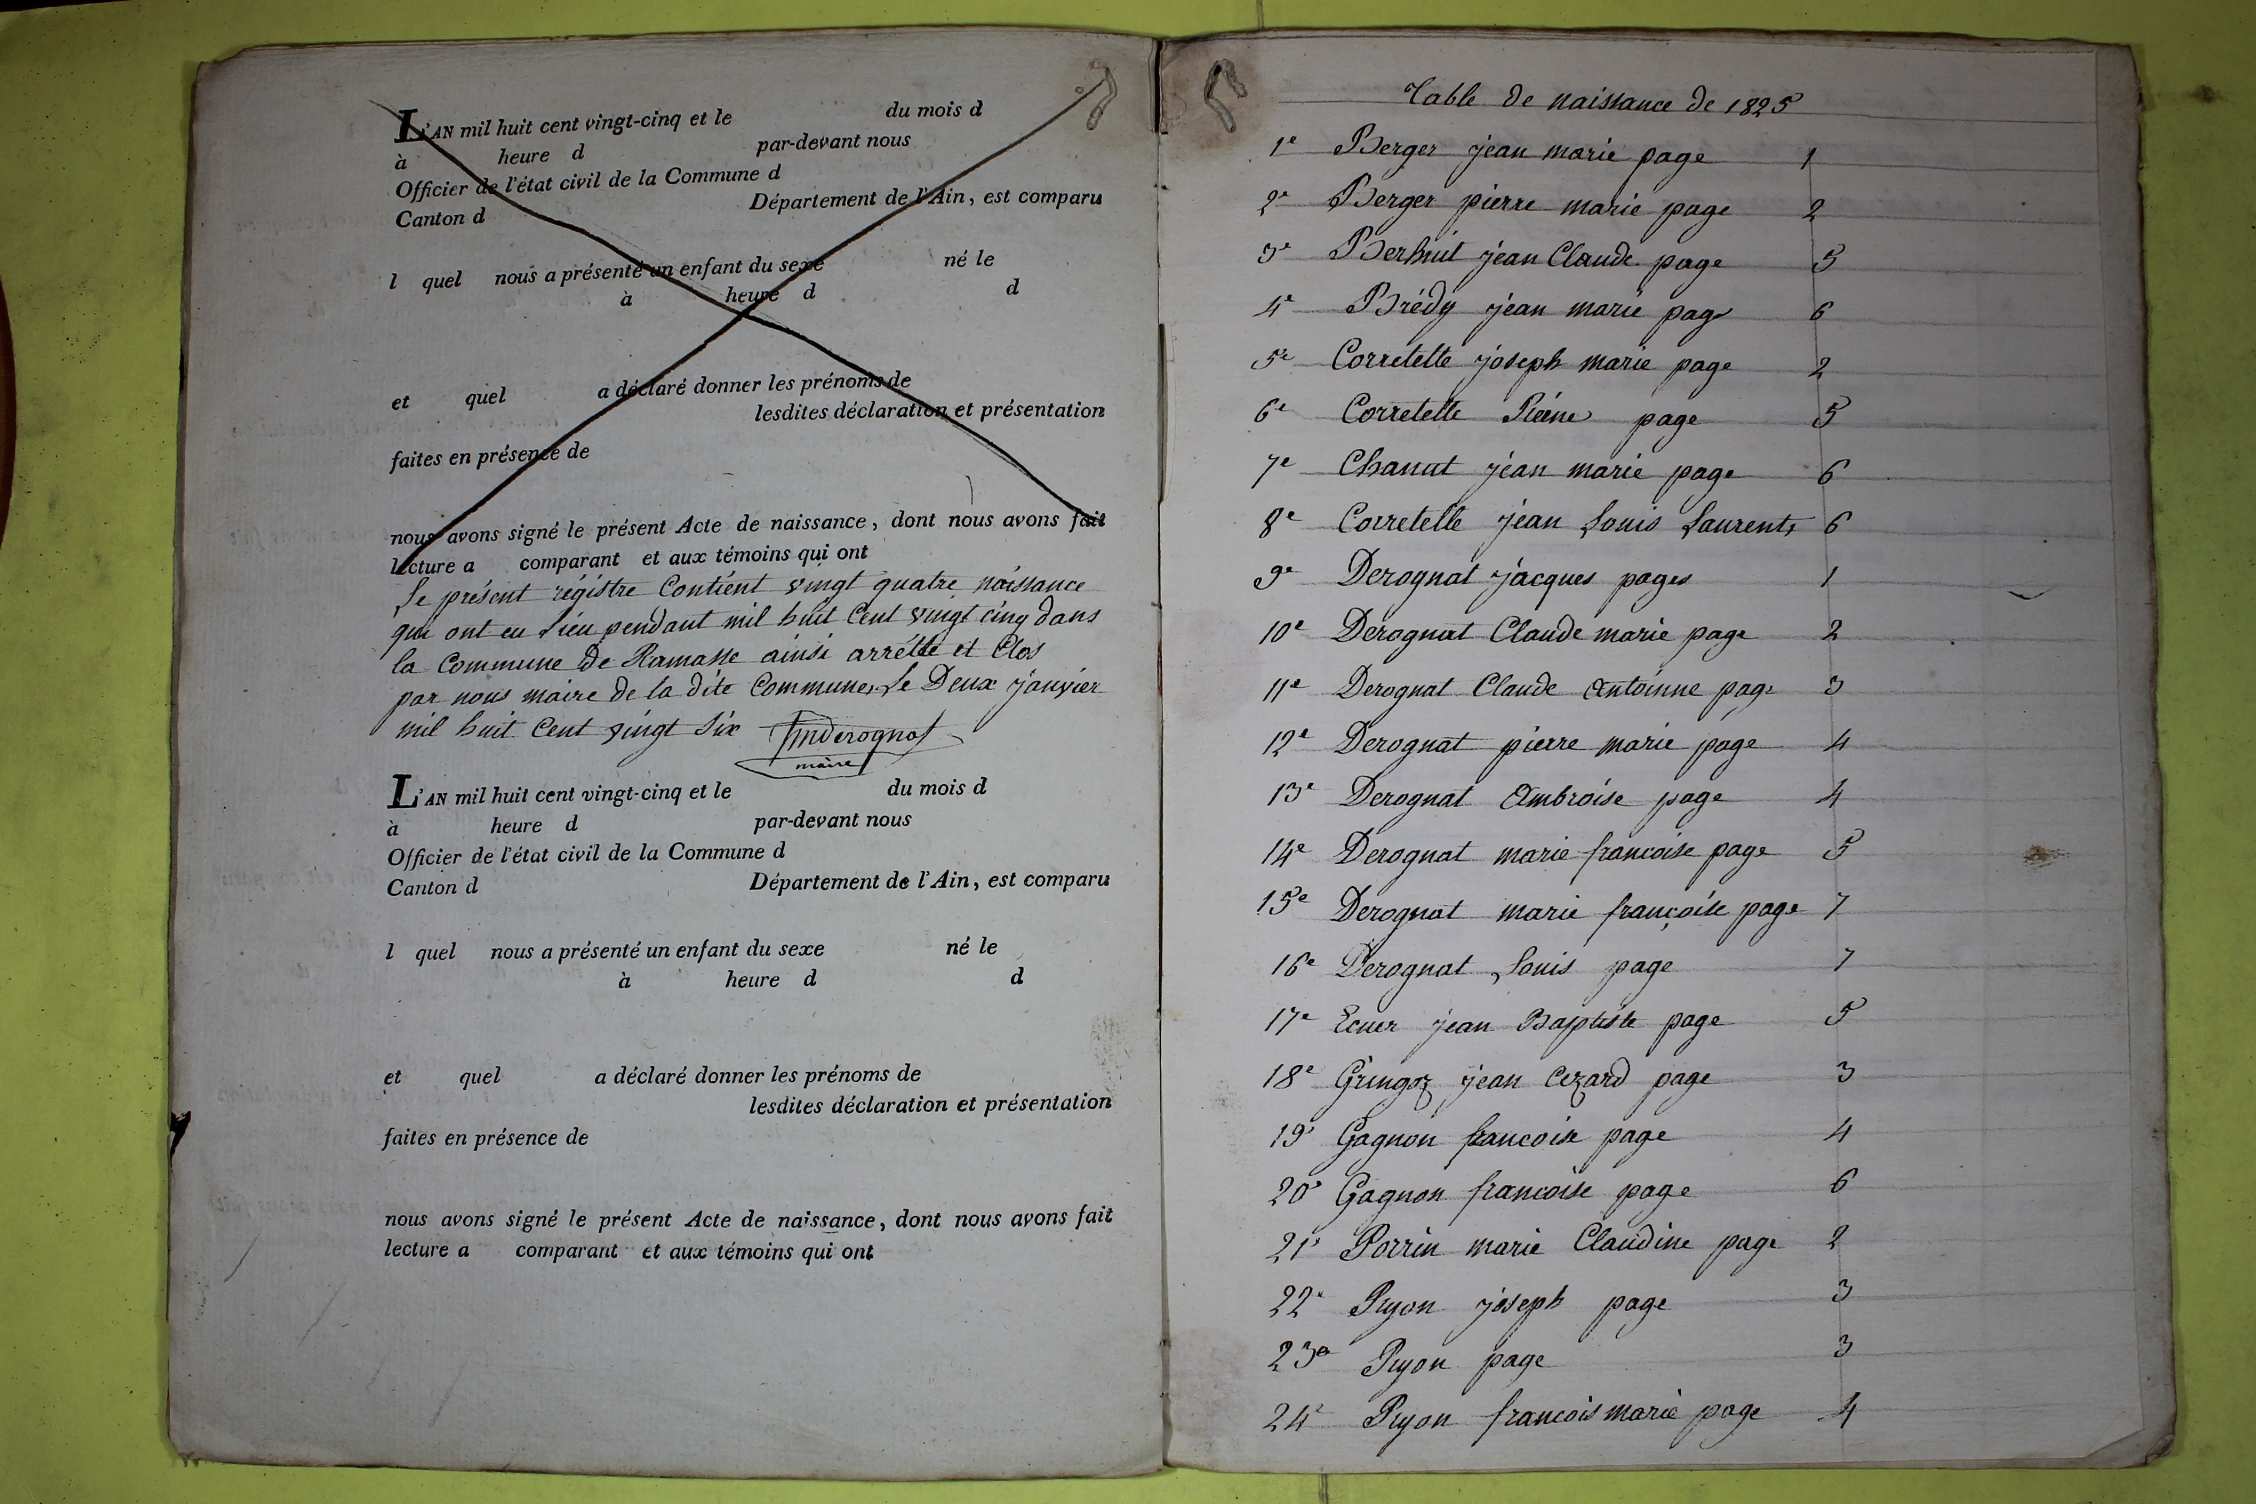 L'AN mil huit cent vingt-cinq et le du mois d
à heure d par-devant nous
Officier de l'état civil de la Commune d
Canton d Département de l'Ain, est comparu
l quel nous a présenté un enfant du sexe né le
à heure d d
et quel a déclaré donner les prénoms de
lesdites déclaration et présentation
faites en présence de
nous avons signé le présent Acte de naissance, dont nous avons fait
lecture a comparant et aux témoins qui ont
Le présent régistre Contient vingt quatre naissance
qui ont eu Lieu pendant mil huit Cent vingt cinq dans
la Commune de Ramasse ainsi arrêtté et Clos
par nous maire de la dite Commune, Le Deux janvier
mil huit Cent vingt Six
maire
L'AN mil huit cent vingt-cinq et le du mois d
à heure d par-devant nous
Officier de l'état civil de la Commune d
Canton d Département de l'Ain, est comparu
l quel nous a présenté un enfant du sexe né le
à heure d d
et quel a déclaré donner les prénoms de
lesdites déclaration et présentation
faites en présence de
nous avons signé le présent Acte de naissance, dont nous avons fait
lecture a comparant et aux témoins qui ont
Table de naissance de 1825
1e Berger jean marie page 1
2e Berger pierre marie page 2
3e jean Claude page 5
4e Brédy jean marie page 6
5e Corretelle joseph marie page 2
6e Corretelle page 5
7e Chanut jean marie page 6
8e Corretelle jean Louis Laurents 6
9e Derognat jacques pages 1
10e Derognat Claude marie page 2
11e Derognat Claude antoinne page 3
12e Derognat pierre marie page 4
13e Derognat Ambroise page 4
14e Derognat marie francoise page 5
15e Derognat marie françoise page 7
16e Derognat Louis page 7
17e Ecuer jean Baptiste page 5
18e Gringoz jean Cezard page 3
19e Gagnon francoise page 4
20e Gagnon francoise page 6
21e Perrin marie Claudine page 2
22e Puyon joseph page 3
23e Puyon page 3
24e Puyon francois marie page 4